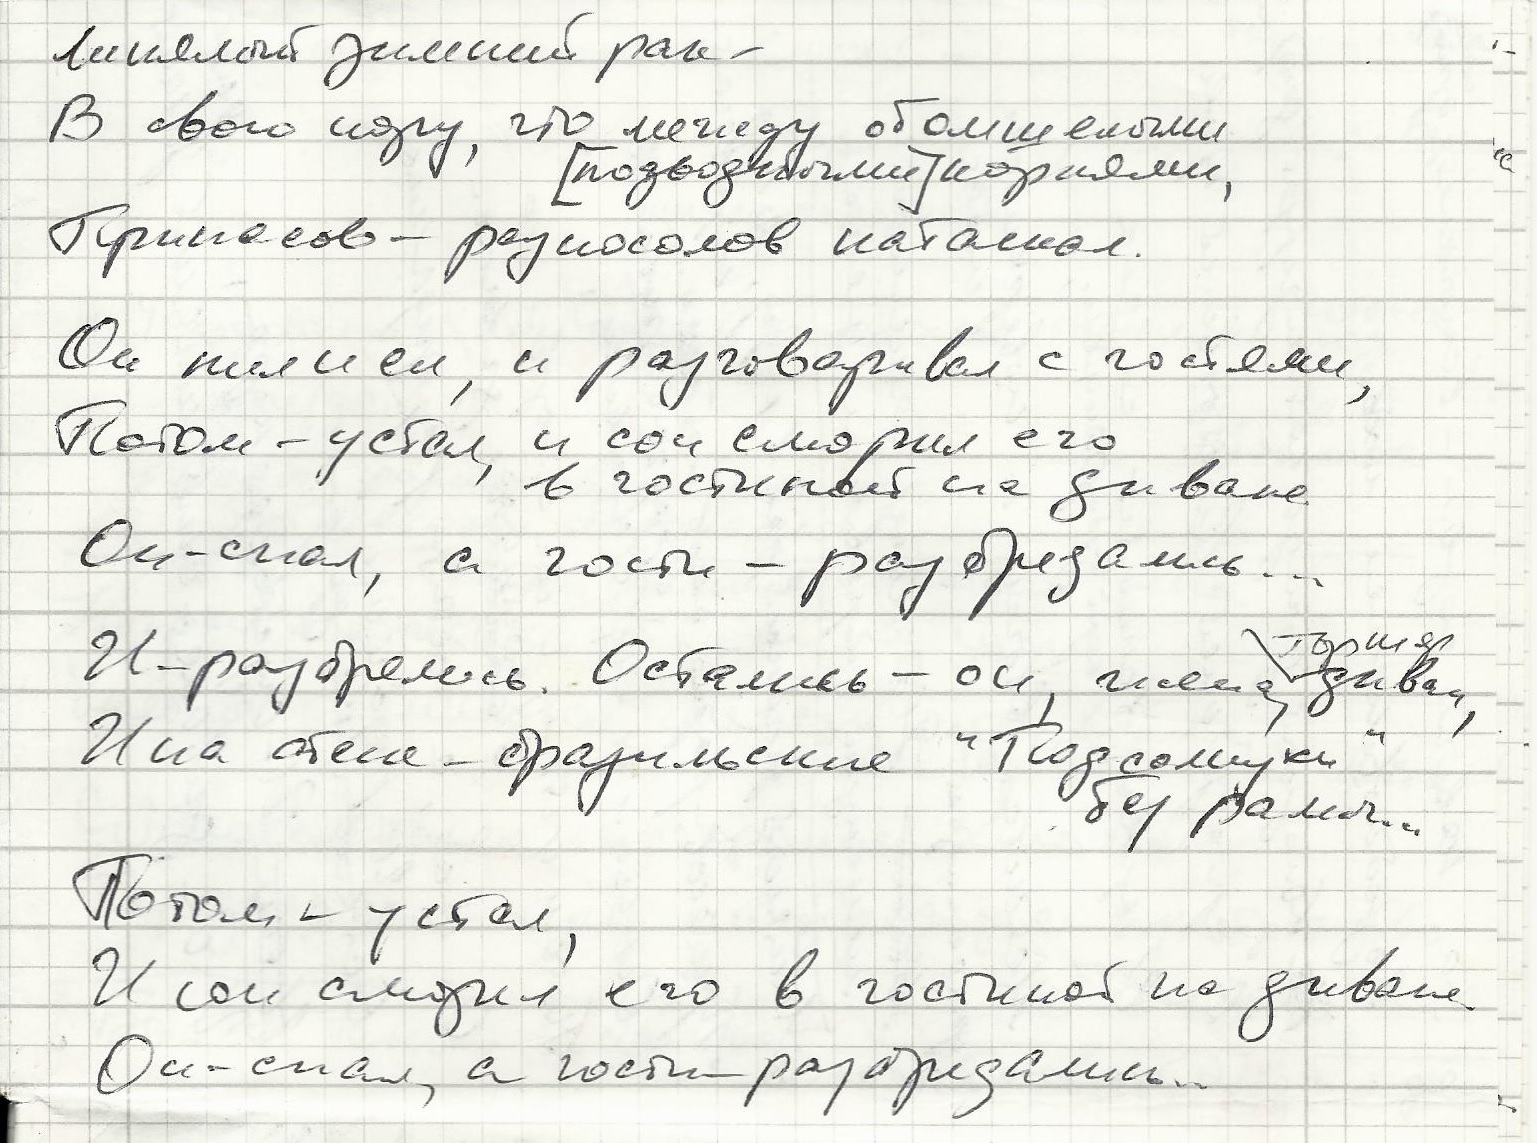 Линялый зимний рак –
В свою нору, что между обомшелыми
[подводными] корнями,
Припасов – разносолов натаскал.
Он пил и ел, и разговаривал с гостями,
Потом – устал, и сон сморил его
в гостиной на диване
Он – спал, а гости – разбредались...
торшер
И – разбрелись. Остались – он, жена, диван,
И на стене – бразильские "Подсолнухи"
без рамы...
Потом – устал,
И сон сморил его в гостиной на диване
Он – спал, а гости – разбредались...